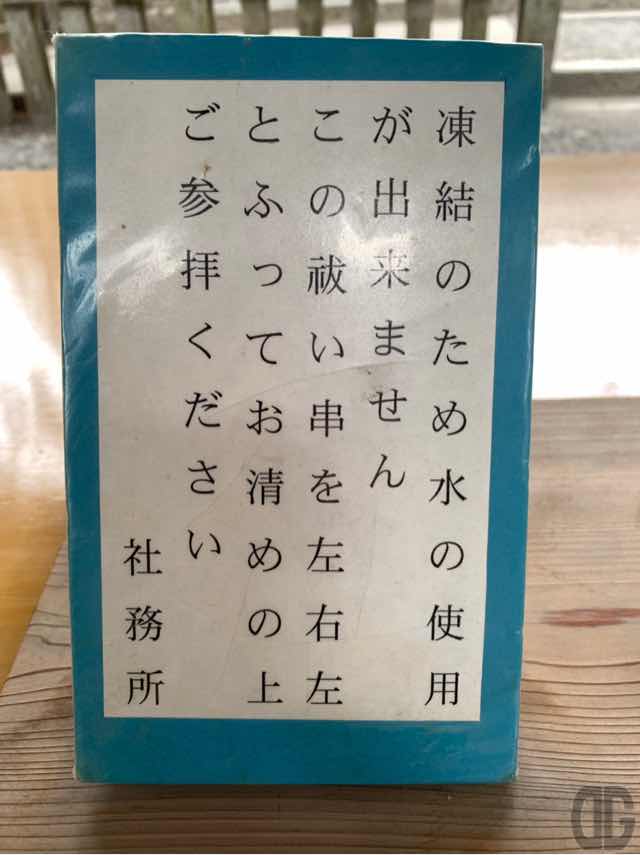 凍結のため水の使用
が出来ません
この祓い串を左右左
とふってお清めの上
ご参拝ください
社務所